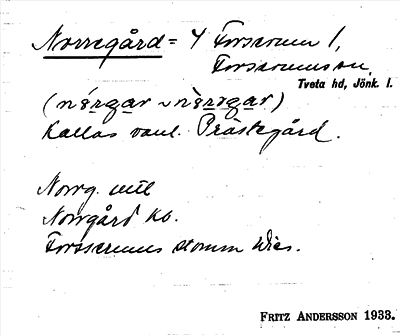 Norregård = 4 Forserum 1,
Forserums sn,
Tveta hd, Jönk. l.
(nǽrgar ~ nǽregar)
Kallas vanl. Prästegård.
Norrg. utll
Norrgård kb.
Forsserums stomm
FRITZ ANDERSSON 1933.